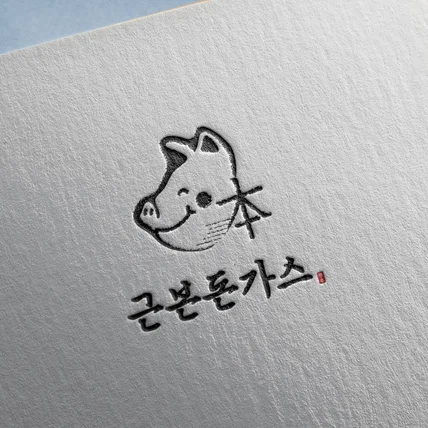 本
근본돈가스